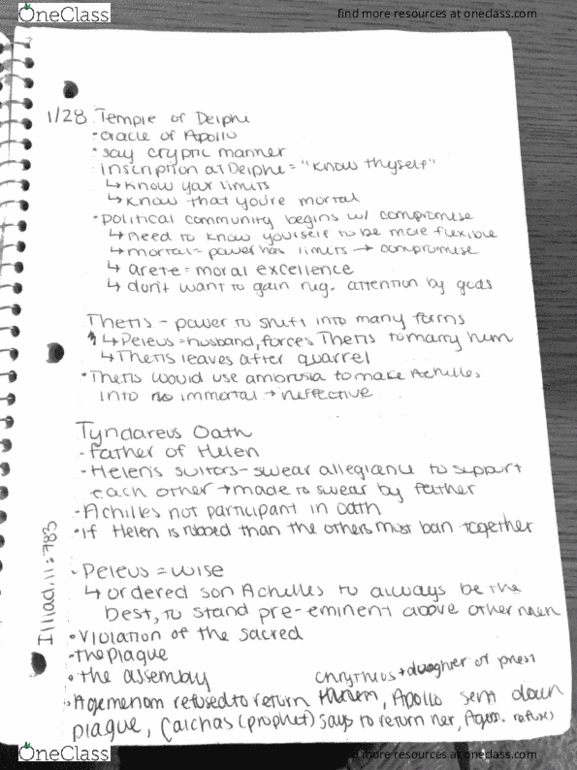 OneClass
find more resources at oneclass.com
1/28 Temple of Delphi
• oracle of Apollo
• say cryptic manner
inscription at Delphi = "know thyself"
↳ know your limits
↳ know that you're mortal
• political community begins w/ compromise
↳ need to know yourself to be more flexible
↳ mortal = power has limits → compromise
↳ arete = moral excellence
↳ don't want to gain neg. attention by gods
Thetis - power to shift into many forms
↳ Peleus = husband, forces Thetis to marry him
↳ Thetis leaves after quarrel
• Thetis would use ambrosia to make Achilles
into immortal → ineffective
Tyndareus Oath
- father of Helen
- Helen's suitors - swear allegiance to support
each other → made to swear by father
- Achilles not participant in oath
• if Helen is robbed than the others must ban together
• Peleus = wise
↳ ordered son Achilles to always be the
best, to stand pre-eminent above other men
Illiad. 11:783
• violation of the sacred
- the plague
• the assembly
Chrytheus + daughter of priest
• Agememnom refused to return, Apollo sent down
plague, Calchas (prophet) says to return her, Agam. refuses
OneClass
find more resources at oneclass.com